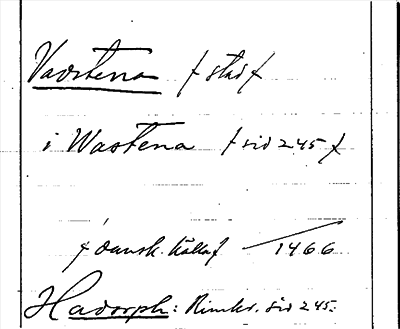 Vadstena /stad/
i Wastena /sid 245/
/dansk. källa/ 1466
Hadorph: Rimkr. sid 245.